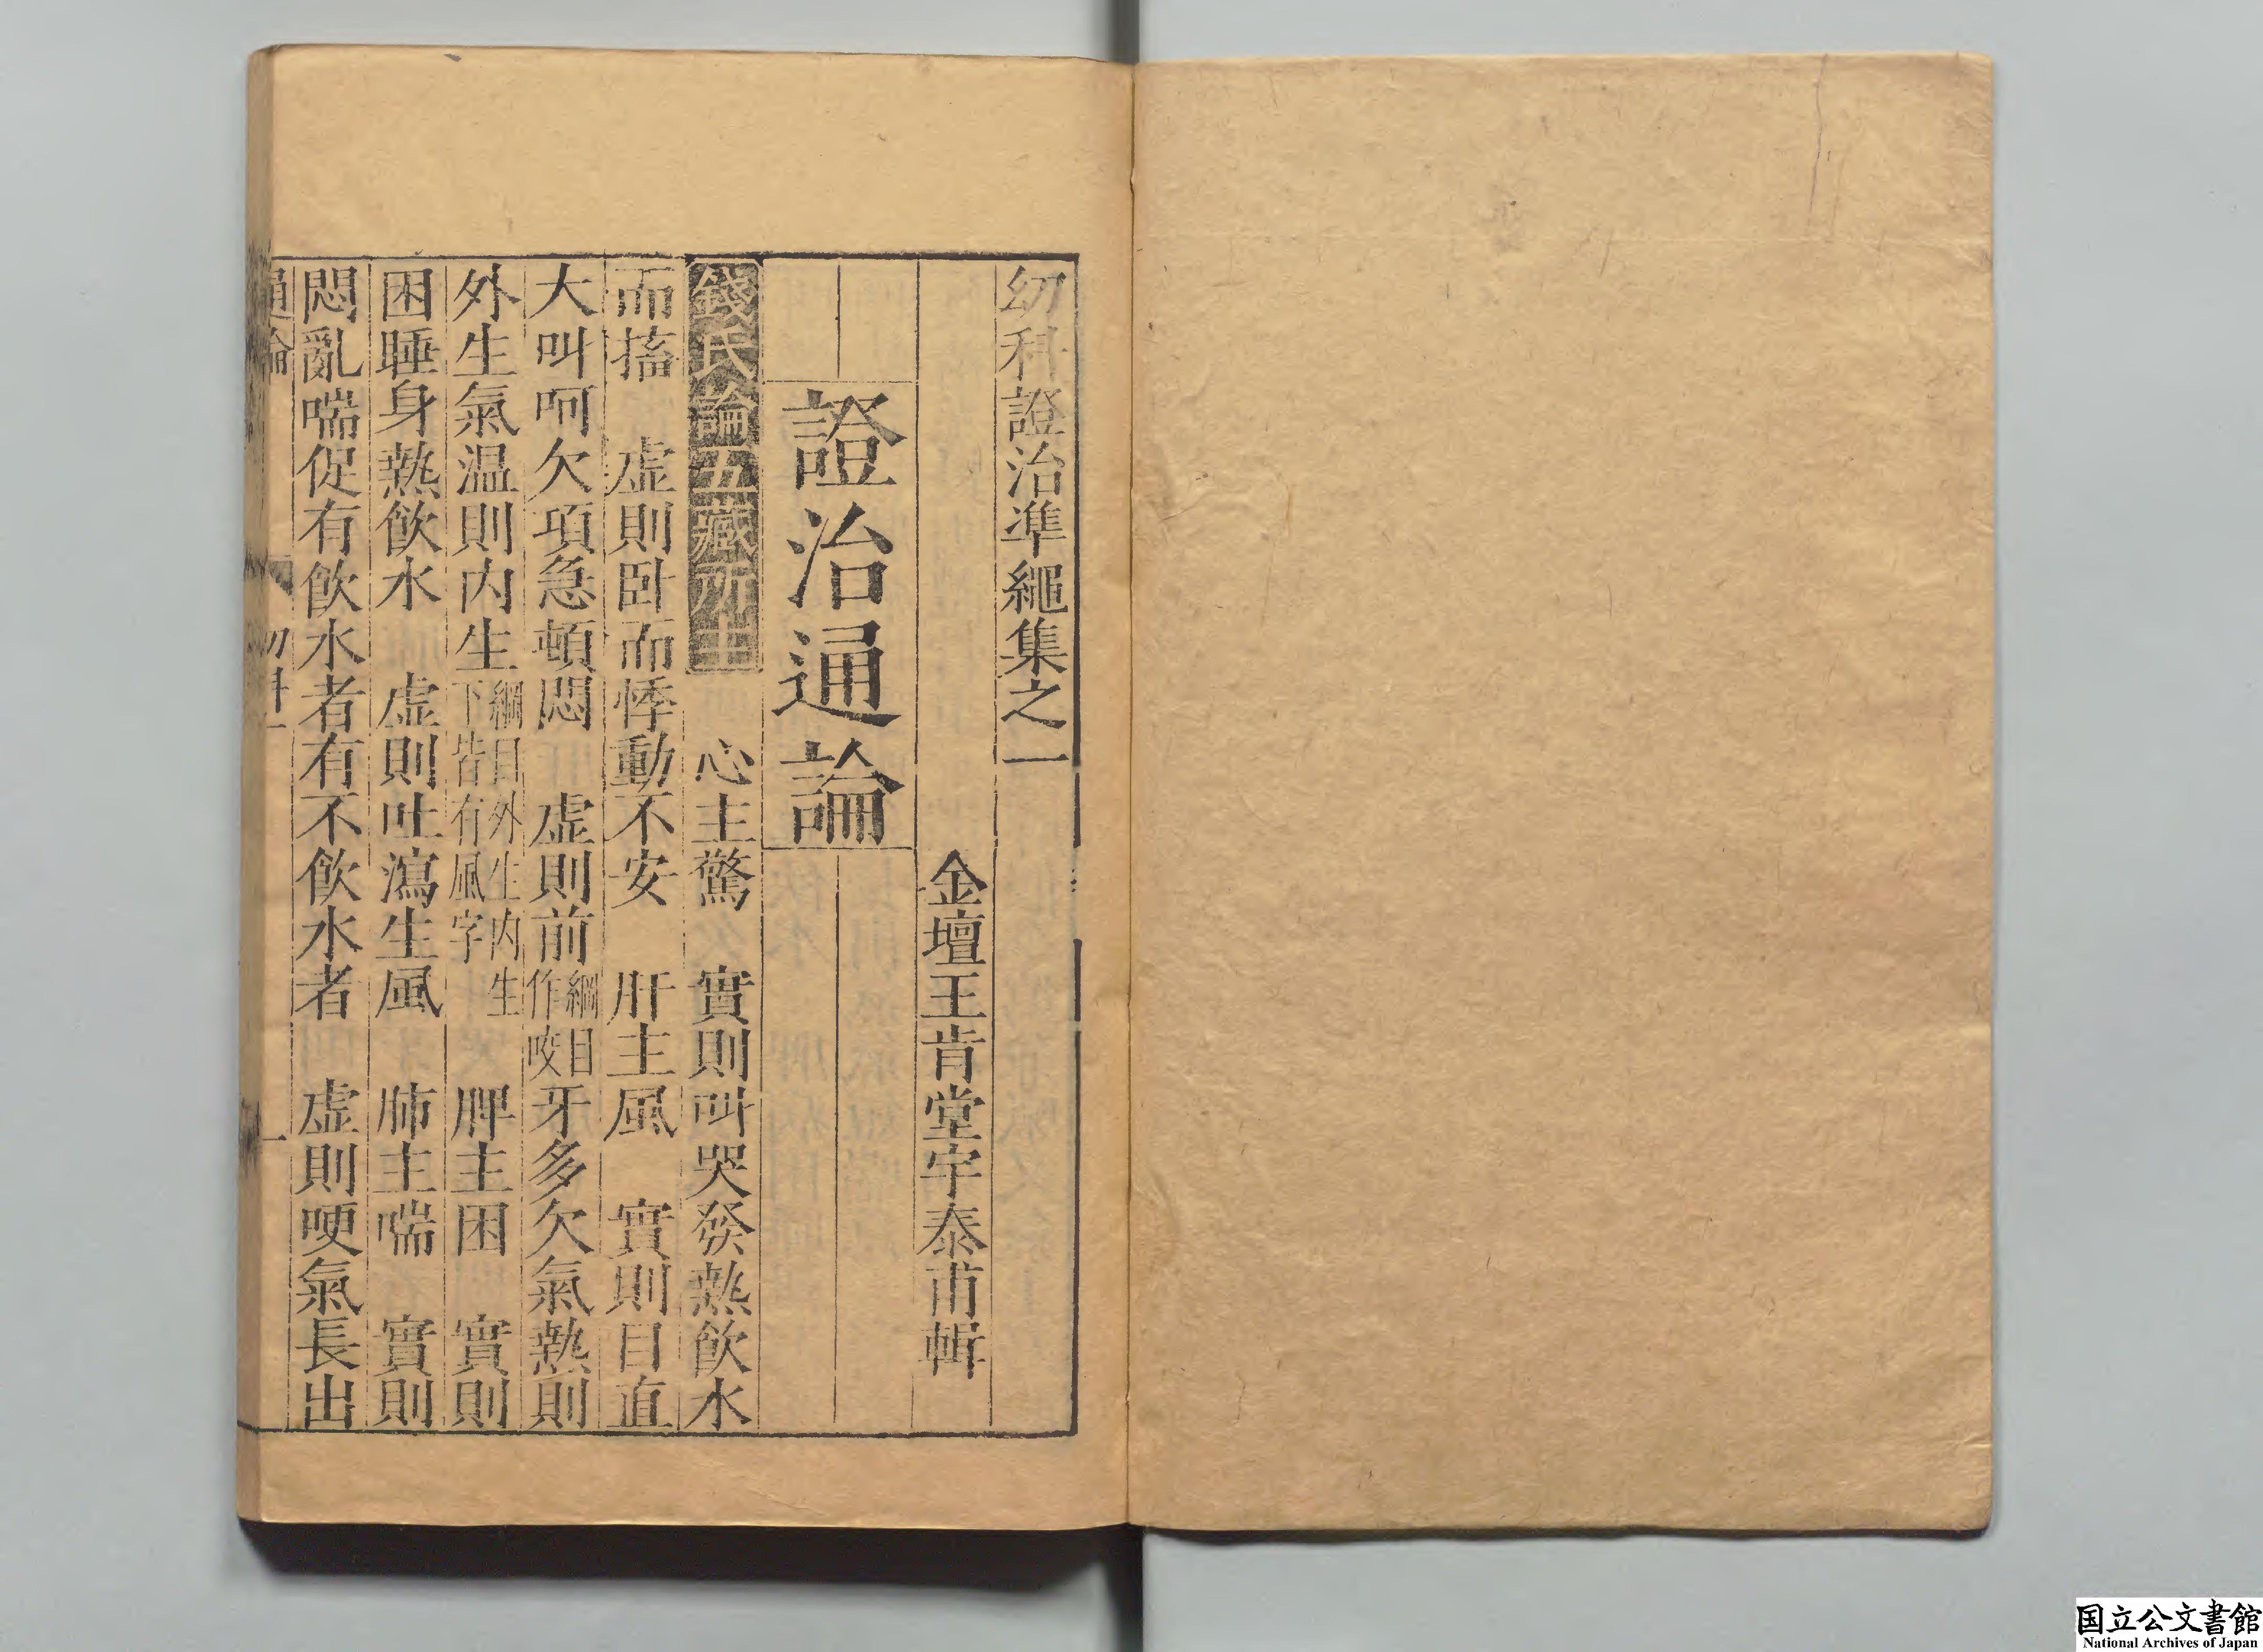 幼科證治準繩集之一
金壇王肯堂宇泰甫輯
證治通論
錢氏論五臟所主　心主驚　實則叫哭發熱飲水
而搐　虚則卧而悸動不安　肝主風　實則目直
大叫呵欠項急頓悶　虚則前綱目作咬牙多欠氣熱則
外生氣温則内生綱目外生内生下皆有風字　脾主困　實則
困睡身熱飲水　虚則吐瀉生風　肺主喘　實則
悶亂喘促有飲水者有不飲水者　虚則哽氣長出
通論　幼科一　一
国立公文書館
National Archives of Japan